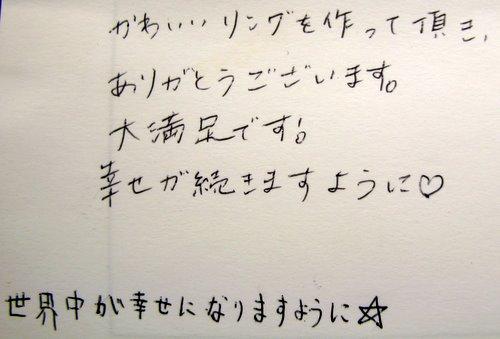 かわいいリングを作って頂き、
ありがとうございます。
大満足です!。
幸せが続きますように♡
世界中が幸せになりますように☆